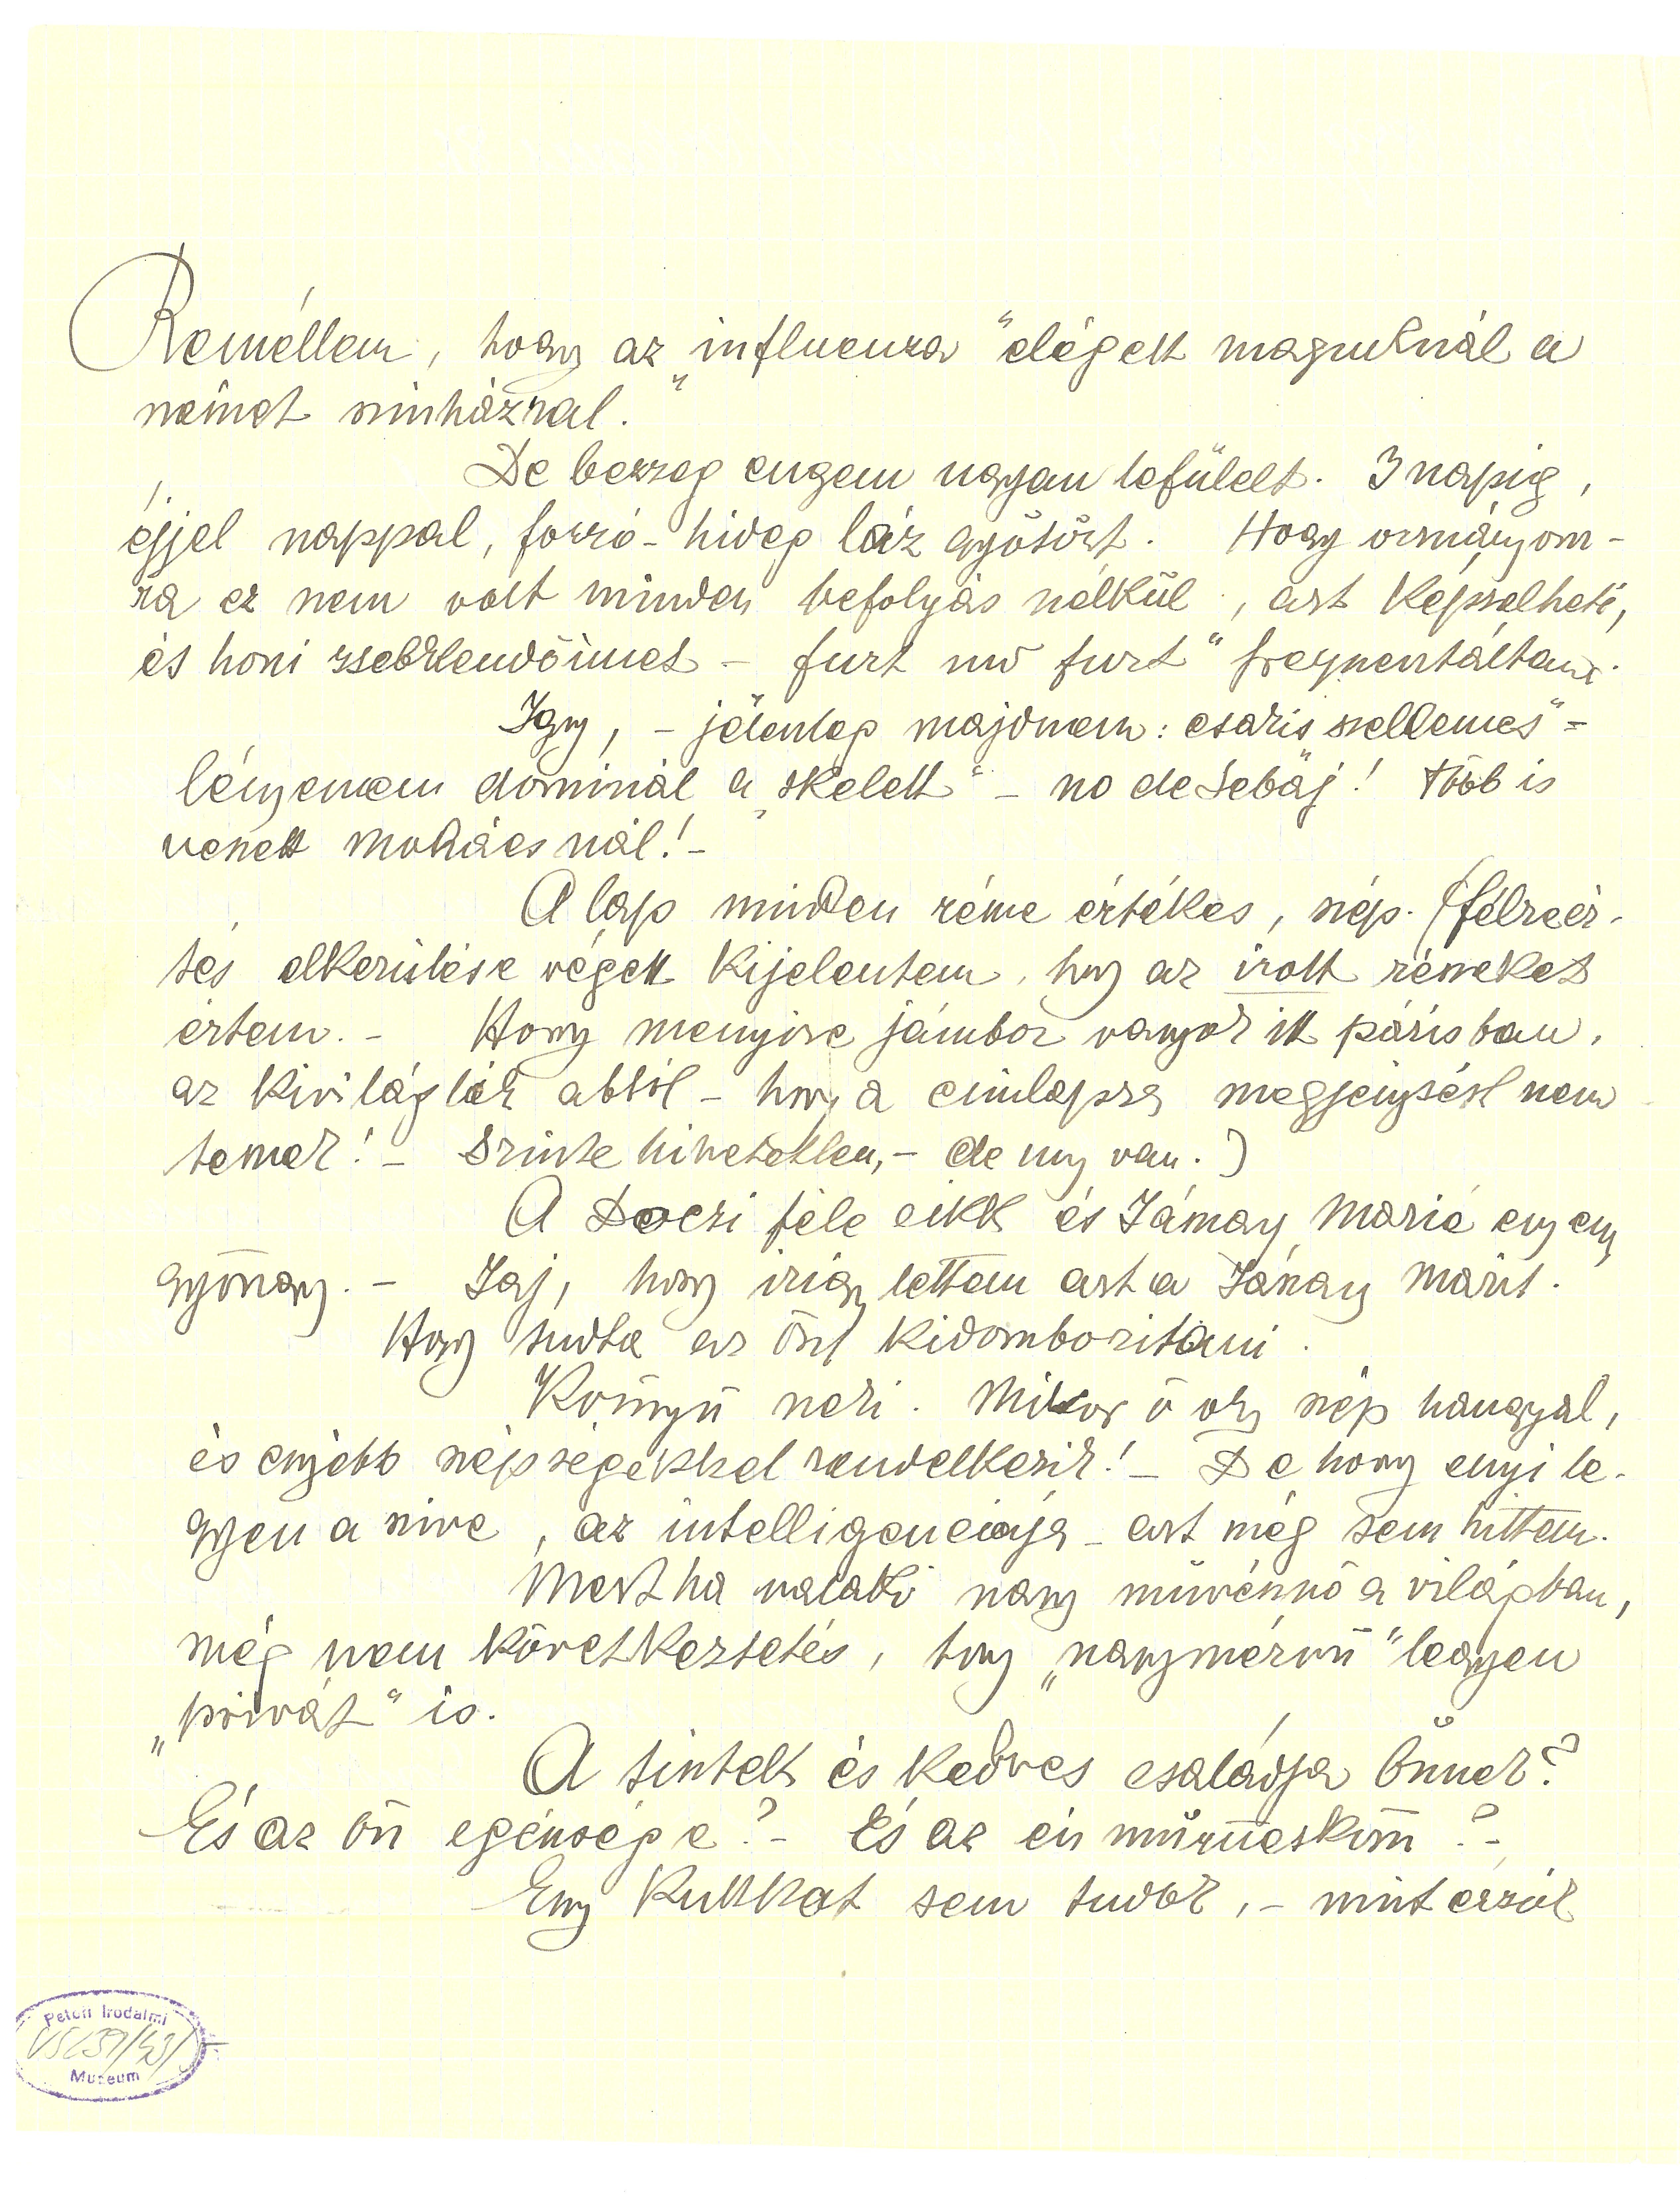 Reméllem, hogy az „influenza" elégett maguknál a
német szinházzal.
De bezzeg engem ugyan lefülelt. 3 napig,
éjjel nappal, forró-hideg láz gyötört. Hogy ormányom-
ra ez nem volt minden befolyás nélkül, azt képzelheti,
és honi zsebkendőimet – furt und furt" freqventáltam.
Igy, – jelenleg majdnem: csak is szellemes" =
lényemen dominál a „skelett" – no de sebaj! több is
veszett Mohácsnál! –
A lap minden része értékes, szép. (félreér-
tés elkerülése végett kijelentem, hogy az irott részeket
értem. – Hogy menyire jámbor vagyok itt párisban,
az kiviláglik abból – hogy a cimlapra megjegyzést nem
teszek! – Szinte hihetetlen, – de ugy van.)
A Doczi féle cikk és Jászay Marié egy egy
gyöngy. – Jaj, hogy irigylettem azt a Jászay Marit.
Hogy tudta ez önt kidomboritani.
Könnyü neki. Mikor ő oly szép hanggal,
és egyébb szépségekkel rendelkezik! – De hogy enyi le-
gyen a szive, az intelligenciája – azt még sem hittem.
Mert ha valaki nagy müvésznő a világban,
még nem következtetés, hogy „nagymérvü" legyen
„privát" is.
A tisztelt és kedves családja Önnek?
És az ön egészsége? – És az én müzüesköm? –
Egy kukkot sem tudok, – mint ezról